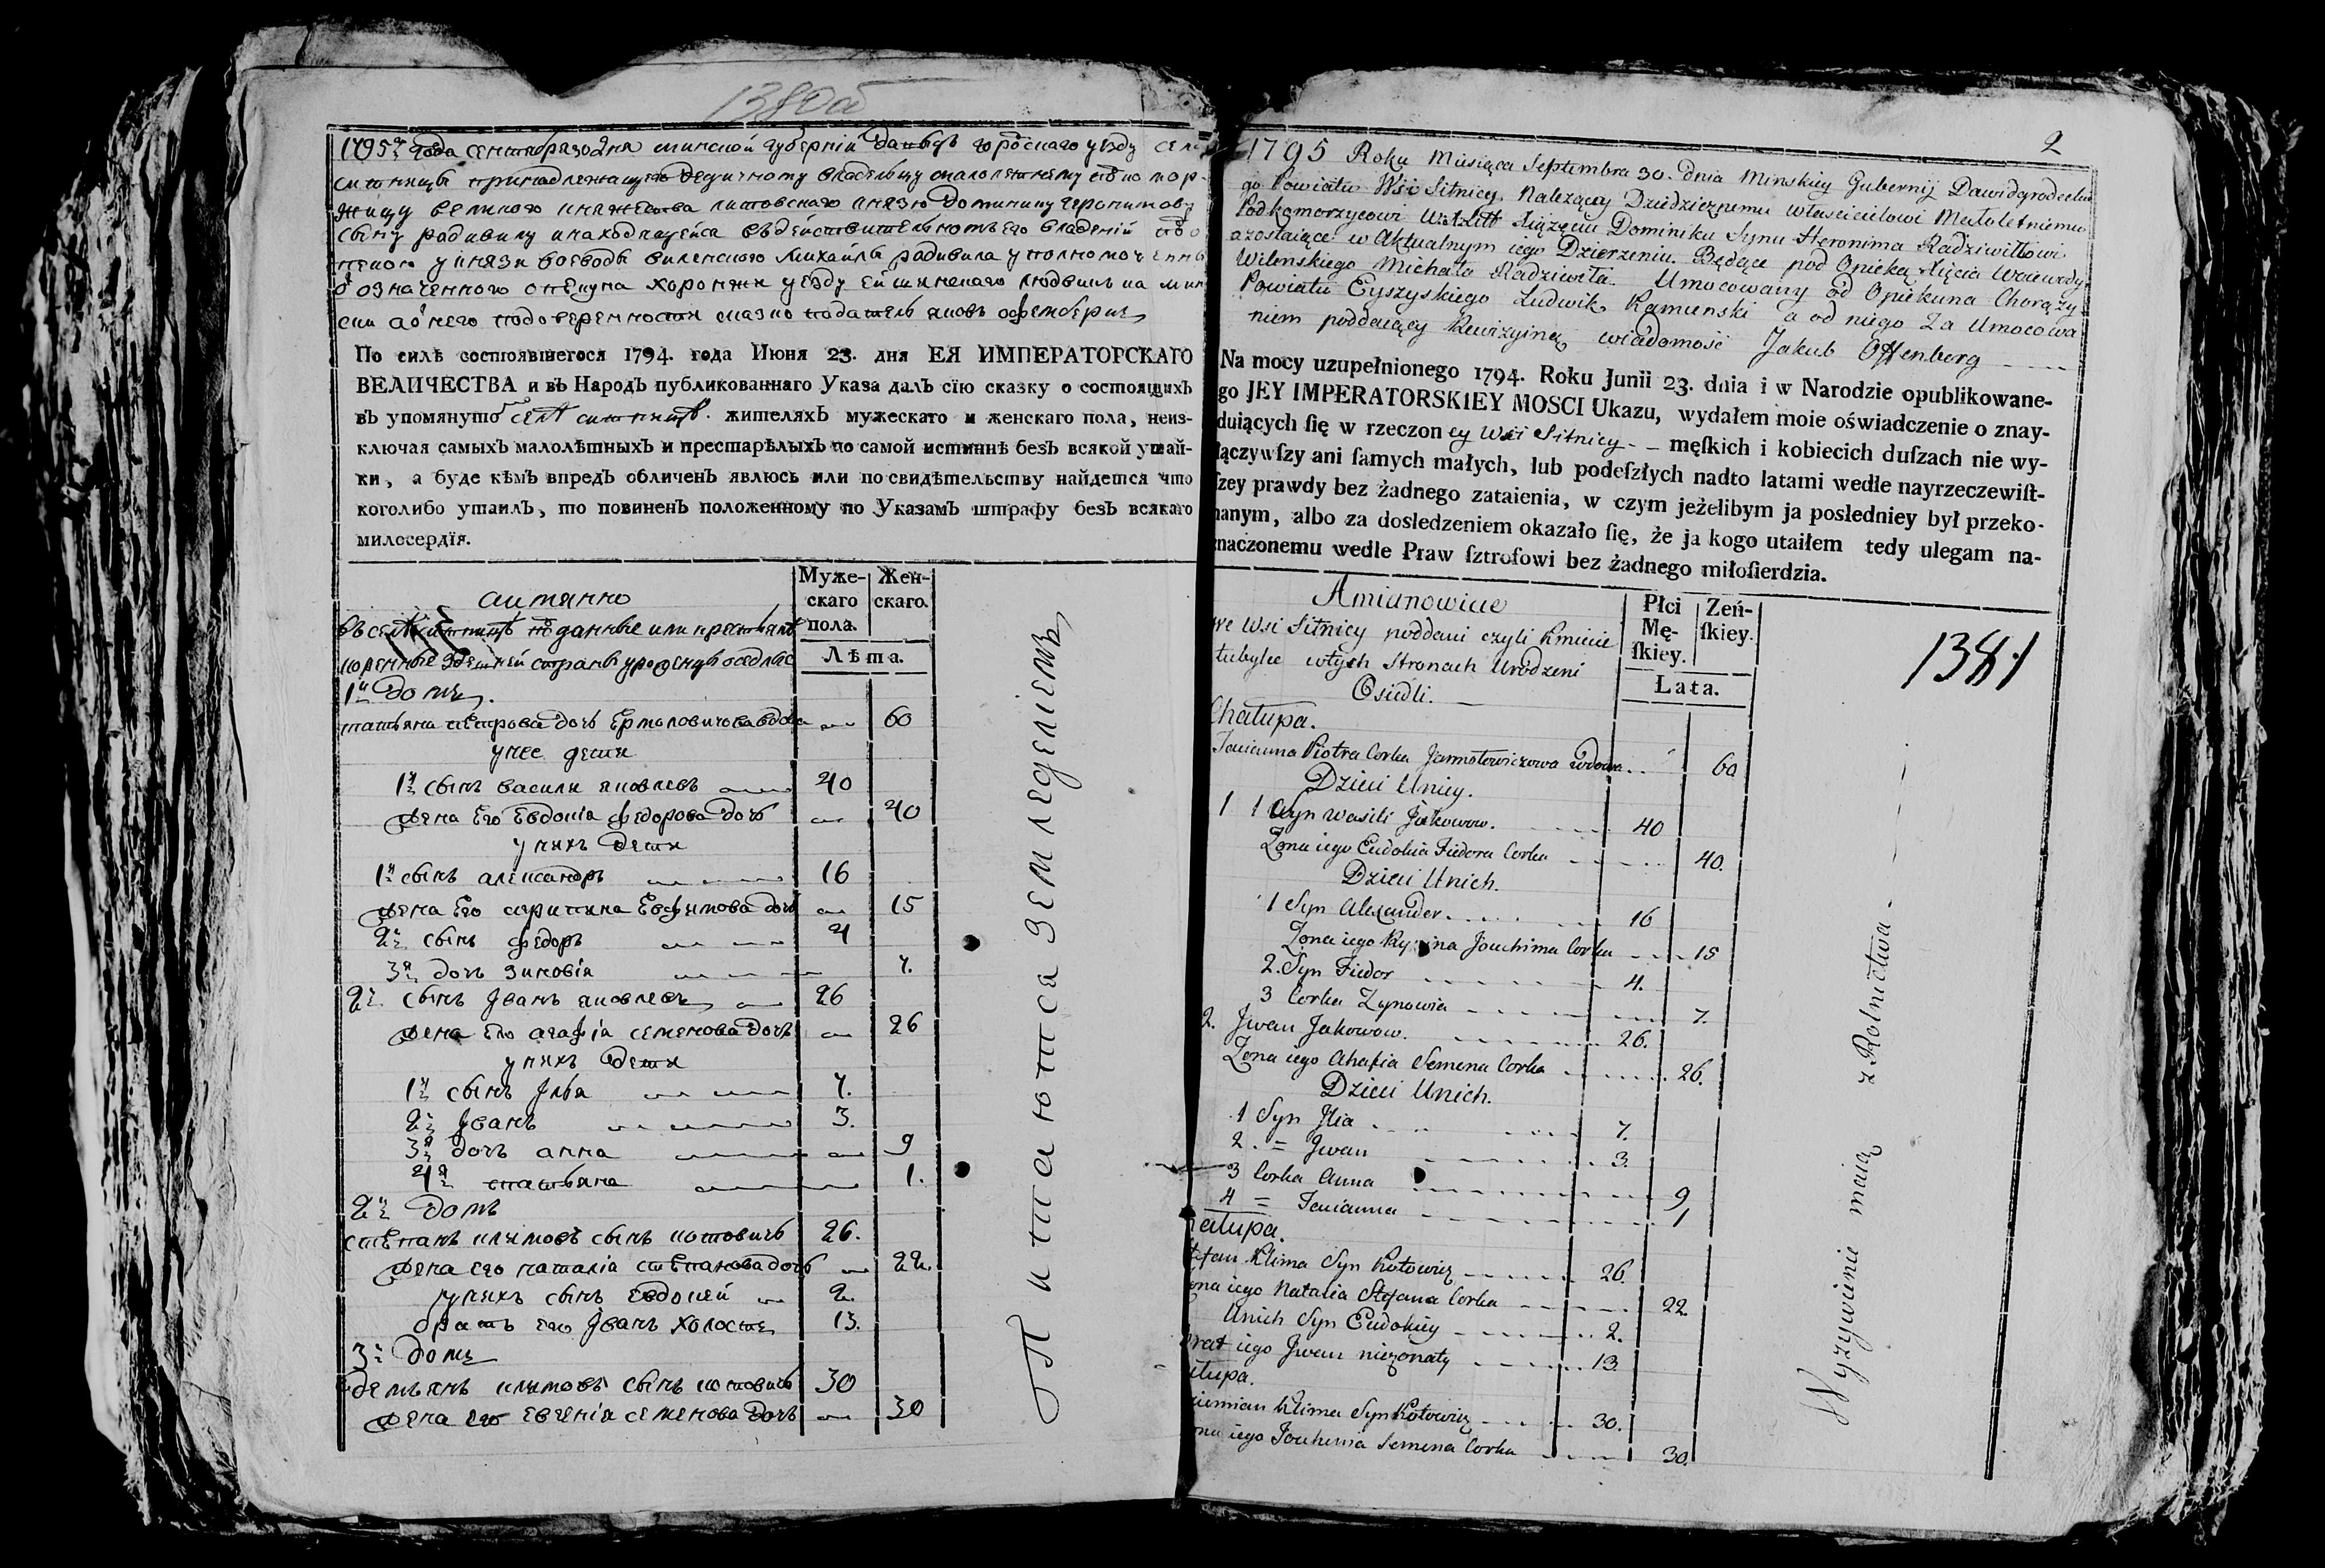 1380об
1795г года сентября 30 дня минской губернии давыдъ городскаго уезду села
ситницы принадлежащего дедичному владельцу малолетнему подкомор-
жицу великого княжества литовскаго князю доминику герониmову
сыну радивилу инаходящейся въдействительномъ его владении подо
пекою укнязя воеводы виленского михайлы радивила уполномоченны
о означенного опекуна хоронжи уезду ейшишскаго людвика камин
ски а отнего подоверенности сказко податель яковъ офемберг
По силѣ состоявшегося 1794. года Июня 23. дня ЕЯ ИМПЕРАТОРСКАГО
ВЕЛИЧЕСТВА и въ Народъ публикованнаго Указа далъ сїю сказку о состоящихъ
въ упомянуто селе ситницѣ. жителяхъ мужескато и женскаго пола, неиз-
ключая самыхъ малолѣтныхъ и престарѣлыхъ по самой истиннѣ безъ всякой утай-
ки, а буде кѣмъ впредъ обличенъ явлюсь или по свидѣтельству найдется что
коголибо утаилъ, то повиненъ положенному по Указамъ штрафу безъ всякаго
милосердїя.
аимянно
Муже-
скаго
пола.
Жен-
скаго.
Лѣта.
въселе ситницѣ поданные или крестьяне
коренные здешней страны уроженцы оседлые
1й домъ
татьяна петрова дочь Ермоловичова вдова 60
унее дети
1й сынъ василий яковлевъ 40
жена его Евдокiя федорова дочь 40
унихъ дети
1й сынъ александръ 16
жена его кирикина Евфимова дочь 15
2й сынъ федоръ 4
3я дочь зиновiя 7.
2й сынъ Iванъ яковлевъ 26
жена его агафiя семенова дочь 26
унихъ дети
1й сынъ Iлья 7.
2й Iванъ 3.
3я дочь анна 9
4я татьяна 1.
2й домъ
степанъ климовъ сынъ котовичь 26.
жена его наталiя степанова дочь 22.
унихъ сынъ Евдокей 2.
братъ его Iванъ холостъ 13.
3й домъ
демьянъ климовъ сынъ котовичь 30
жена его евгенiя семенова дочь 30
Питаются земледелiемъ
2
1795 Roku Miesiąca Septembra 30. dnia Minskiey Gubernij Dawidgrodeckie
go Powiatu Wsi Sitnicy. Należącey Dziedzicznemu Właścicielowi Małoletniemu
Podkomorzycowi W. X. Litt Xiążęciu Dominiku Synu Heronima Radziwiłłowi
azostaiące w Aktualnym iego Dzierzeniu. Będące pod Opieką Xięcia Woiewody
Wilenskiego Michała Radziwiła. Umocowany od Opiekuna Chorąży
Powiatu Eyszyskiego Ludwik Kamienski a od niego Za Umocowa
niem poddaiący Rewizyiną wiadomość Jakub Offenberg
Na mocy uzupełnionego 1794. Roku Junii 23. dnia i w Narodzie opublikowane-
go JEY IMPERATORSKIEY MOSCI Ukazu, wydałem moie oświadczenie o znay-
duiących ſię w rzeczoney Wsi Sitnicy - - męſkich i kobiecich duſzach nie wy-
łączywſzy ani ſamych małych, lub podeſzłych nadto latami wedle nayrzeczewiſt-
ſzey prawdy bez żadnego zataienia, w czym jeżelibym ja posledniey był przeko-
nanym, albo za dosledzeniem okazało ſię, że ja kogo utaiłem tedy ulegam na-
znaczonemu wedle Praw ſztrofowi bez żadnego miłoſierdzia.
Amianowicie
Płci
Mę-
ſkiey.
Zeń-
ſkiey.
Lata.
1381
we Wsi Sitnicy poddani czyli kmiecie
tubylce wtych Stronach Urodzeni
Osiedli.
Chałupa.
Taciana Piotra Corka Jarmołowiczowa wdowa 60
Dzieci Uniey.
1 1 Syn Wasili Jakowow. 40
Zona iego Eudokia Fiedora Corka 40.
Dzieci Unich.
1 Syn Alexander 16
Zona iego Kyryina Jouchima Corka 15
2. Syn Fiedor 4.
3 Corka Zynowia 7.
2. Jwan Jakowow. 26.
Zona iego Ahafia Semena Corka 26.
Dzieci Unich.
1 Syn Jlia 7.
2. = Jwan 3.
3 Corka Anna 9
4 = Tacianna 1
ałupa.
tefan Klima Syn Kotowicz 26.
ona iego Natalia Stefana Corka 22.
Unich Syn Eudokiey 2.
brat iego Jwan nieżonaty 13.
ałupa.
ziemian Klima Syn Kotowicz 30.
ona iego Jouhinia Semena Corka 30.
Wyżywienie maią z Rolnictwa